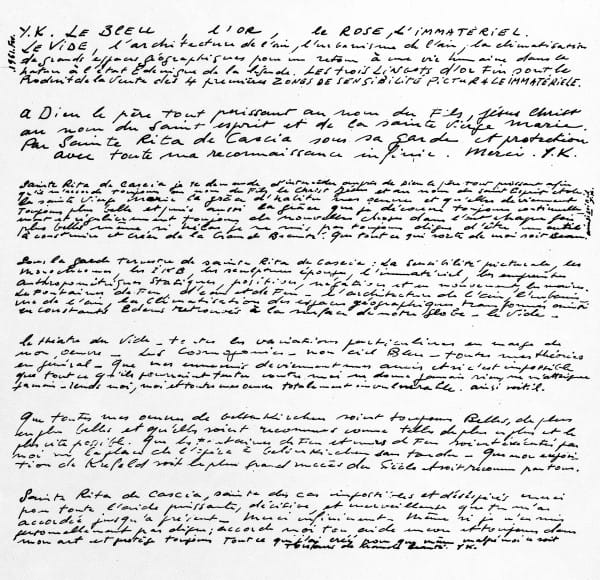 1961 Fev.
Y.K. LE BLEU l'OR, le ROSE, L'IMMATÉRIEL.
LE VIDE, l'architecture de l'air, l'urbanisme de l'air, la climatisation
de grands espaces géographiques pour un retour à une vie humaine dans la
nature à l'état Edénique de la légende. LES trois LINGOTS d'OR FIN sont le
Produit de la Vente des 4 premières ZONES DE SENSIBILITÉ PICTURALE IMMATÉRIELE.
A DIEU le père tout puissant au nom du Fils, Jésus Christ
au nom du Saint esprit et de la sainte Vierge marie.
Par Sainte Rita de Cascia sous sa garde et protection
avec toute ma reconnaissance infinie. Merci. Y.K.
Sainte Rita de Cascia je te demande d'intercéder auprès de Dieu le père tout puissant afin
qu'il m'accorde toujours au nom du Fils le Christ Jésus et au nom du saint Esprit et de
la sainte Vierge Marie la grâce d'habiter mes œuvres et qu'elles deviennent
toujours plus belles et puis aussi la grâce que je découvre toujours continuellement
et régulièrement toujours de nouvelles choses dans l'art chaque fois
plus belles même si hélas je ne suis pas toujours digne d'être un outil
à construire et créer de la Grande Beauté. Que tout ce qui sorte de moi soit Beau.
Sous la garde terrestre de sainte Rita de Cascia: la sensibilité picturale, les
monochromes, les IKB, les sculptures éponge, l'immatériel, les empreintes
anthropométriques statiques, positives, négatives et en mouvement, les suaires.
Les Fontaines de Feu, d'eau et de Feu - l'architecture de l'air, l'urbanisme
de l'air, la climatisation des espaces géographiques transformés ainsi
en constants Edens retrouvés à la surface de notre globe - le Vide -
le théatre du Vide - toutes les variations particulières en marge de
mon œuvre - les Cosmogonies - mon ciel Bleu - toutes mes théories
en général - Que mes ennemis deviennent mes amis et si c'est impossible
que tout ce qu'ils pourraient tenter contre moi ne donne jamais rien, ni ne m'atteigne
jamais - rends moi, moi et toutes mes œuvres totalement invulnérable. ainsi soit-il.
Que toutes mes œuvres de Gelsenkirchen soient toujours Belles, de plus
en plus belles et qu'elles soient reconnues comme telles de plus en plus et le
plus vite possible. Que les Fontaines de Feu et murs de Feu soient exécutés par
moi sur la place de l'opéra à Gelsenkirchen sans tarder - Que mon exposition
de Krefeld soit le plus grand succès du Siècle et soit reconnu par tous.
Sainte Rita de Cascia, sainte des cas impossibles et désespérés merci
pour toute l'aide puissante, décisive, et merveilleuse que tu m'as
accordée jusqu'à présent - Merci infiniment. Même si je n'en suis
personnellement pas digne; accorde moi ton aide encore et toujours dans
mon art et protège toujours tout ce que j'ai créé pour que même malgré moi ce soit
Toujours de Grande Beauté. Y.K.